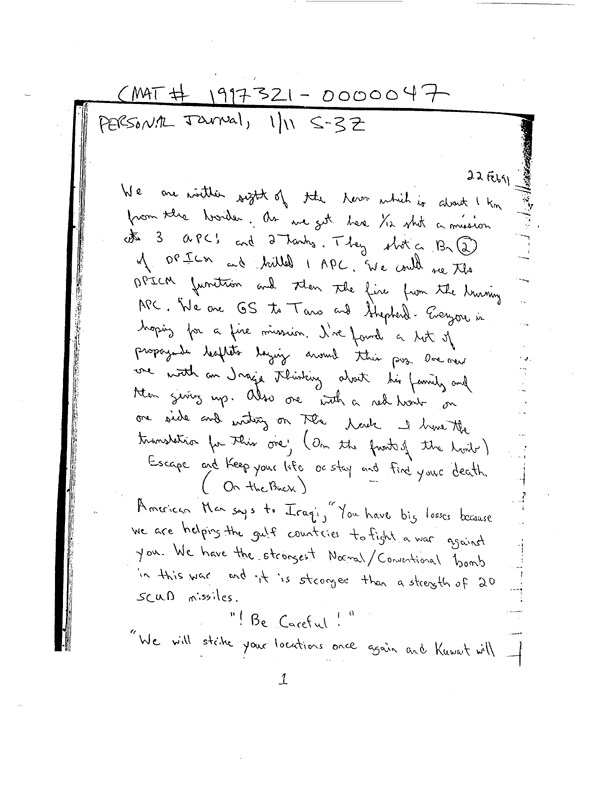 CMAT # 1997321-0000047
PERSONAL Journal, 1/11 S-3Z
22 Feb 91
We are within sight of the berm which is about 1 km
from the border. As we got here 1/12 shot a mission
3 APC's and 2 Tanks. They shot a Bn 2
of DPICM and killed 1 APC. We could see the
DPICM function and then the fire from the burning
APC. We are GS to Taro and Shepherd. Everyone is
hoping for a fire mission. I've found a lot of
propaganda leaflets laying around this pos. One
one with an Iraqi thinking about his family and
then giving up. Also one with a red bomb on
one side and writing on the back I have the
translation for this one; (On the front of the bomb)
Escape and Keep your life or stay and find your death.
(On the Back)
American Man says to Iraqi, "You have big losses because
we are helping the gulf countries to fight a war against
you. We have the strongest Normal/Conventional bomb
in this war and it is stronger than a strength of 20
SCUD missiles.
"! Be Careful !"
"We will strike your locations once again and Kuwait will
1